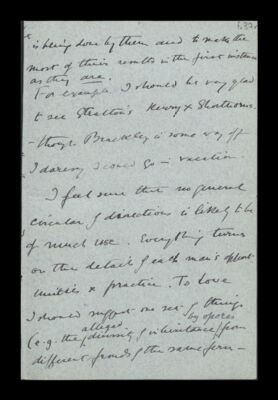 is being done by them and to make the
most of their results in the first instance
as they are.
For example I should be very glad
to see Stratton's Kerry x Shorthorns
- though Brackley is some way off
I daresay I could go in vacation.
I feel sure that no general
circular of directions is likely to be
of much use. Everything turns
on the details of each man's opport-
unities & practice. To Lowe
I should suggest one set of things
by spores
alleged
(e.g. the diversity of inheritance from
different fronds of the same fern -